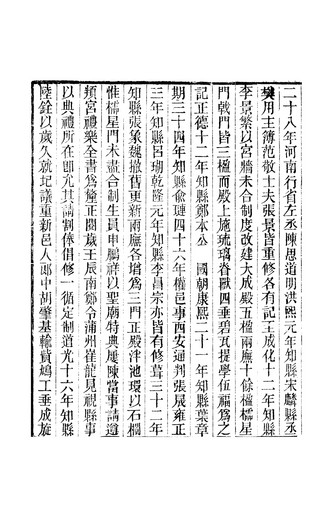 二十八年河南行省左丞陳思道明洪熙元年知縣宋麟縣丞
樊用主簿范敬士夫張景皆重修各有記王成化十二年知縣
李景繁以宮牆未合制度改建大成殿五楹兩廡十餘楹櫺星
門戟門皆三楹而殿上施琉璃脊獸四垂碧瓦提學伍福爲之
記正德十二年知縣鄭本公 國朝康熙二十一年知縣葉章
期三十四年知縣俞璉四十六年權邑事西安通判張晟雍正
三年知縣呂瑚乾隆元年知縣李昌宗亦皆有修葺三十二年
知縣張象魏撤舊更新兩廡各增爲三門正殿泮池環以石欄
惟櫺星門未盡合制生員申鵬祥以聖廟特典屢陳當事請遵
頖宮禮樂全書爲釐正閱歲壬辰南鄭令蒲州崔龍見視縣事
以典禮所在即允其請割俸倡修一循定制道光十六年知縣
陸銓以歲久就圮議重新邑人郎中胡肇基輸貲鳩工垂成旋